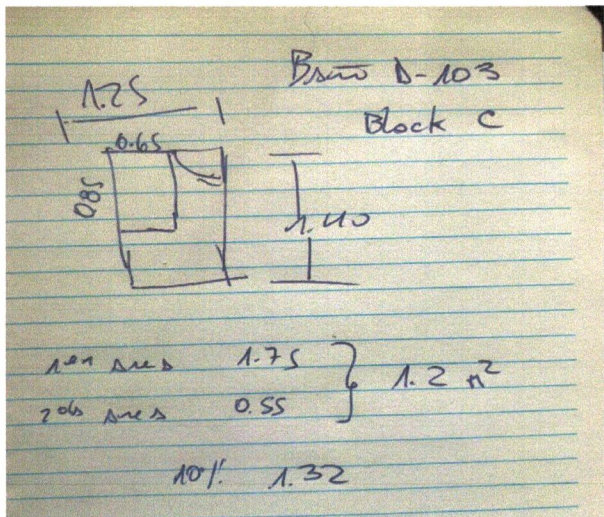 Baño D-103
Block C
1.25
0.65
0.85
1.40
1era area 1.75
2da area 0.55
1.2 m²
10% 1.32